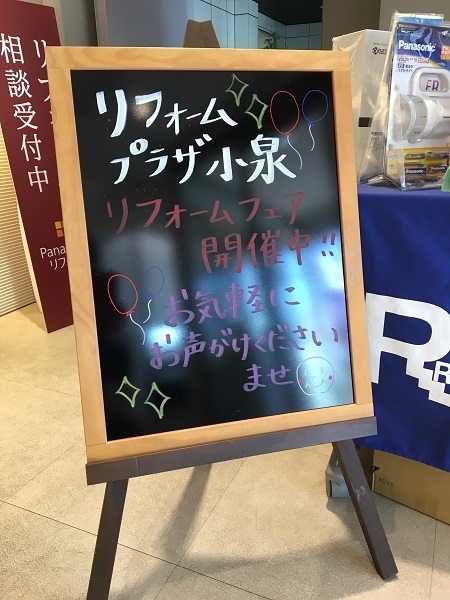 リフォーム
プラザ小泉
リフォームフェア
開催中!!
お気軽に
お声がけください
ませ
相談受付中
リフ
Pana
リフ
Panasonic
R
R